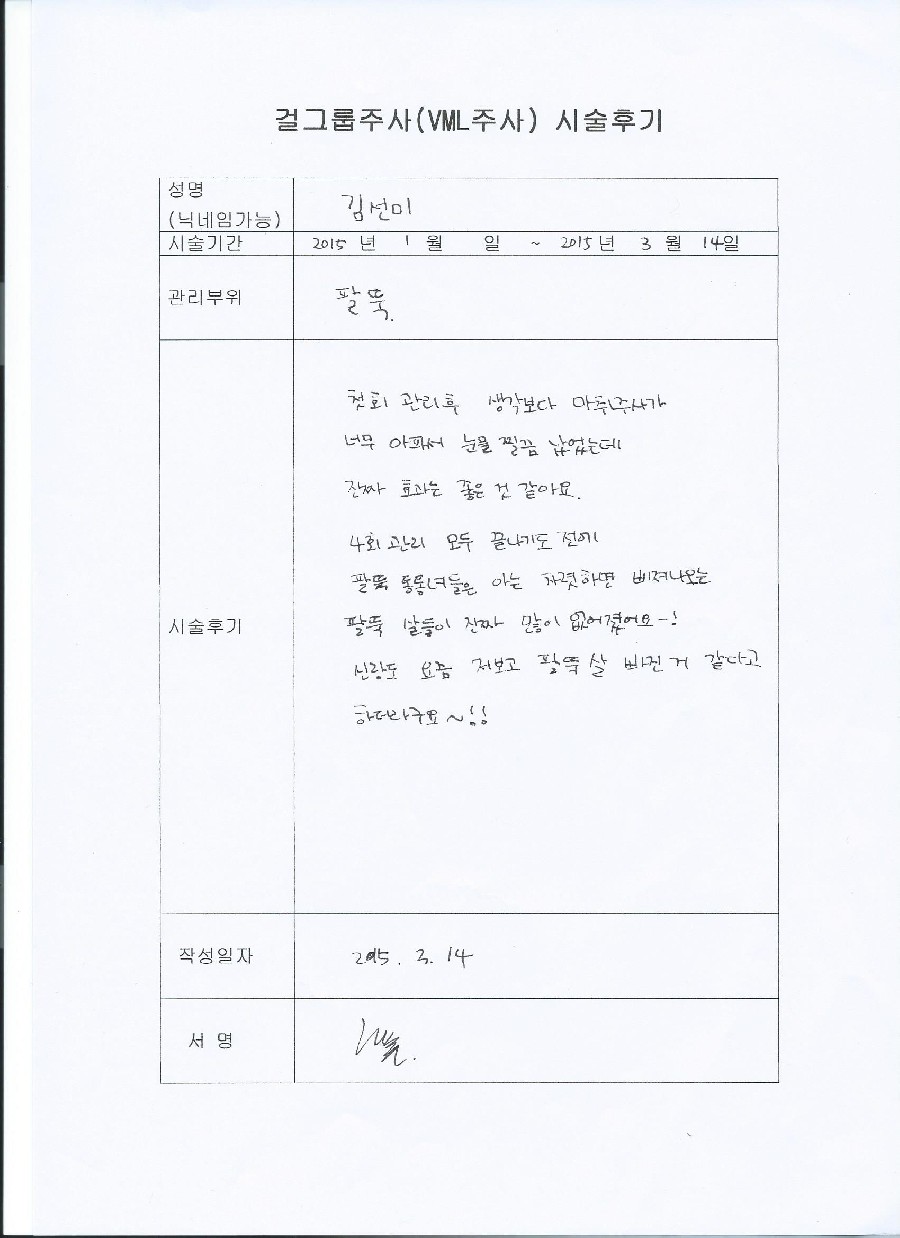 걸그룹주사(VML주사) 시술후기
성명
(닉네임가능)
김선미
시술기간
2015 년 1 월 일 ~ 2015 년 3 월 14일
관리부위
팔뚝.
시술후기
첫회 관리후 생각보다 마취주사가
너무 아파서 눈물 찔끔 났었는데
진짜 효과는 좋은 것 같아요.
4회 관리 모두 끝나기도 전에
팔뚝 통통녀들은 아는 차렷하면 삐져나오는
팔뚝 살들이 진짜 많이 없어졌어요~!
신랑도 요즘 저보고 팔뚝살 빠진 거 같다고
하더라구요~!!
작성일자
2015. 3. 14
서 명